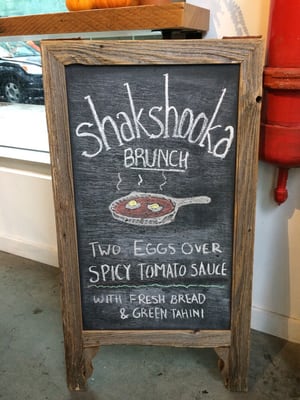 shakshooka
BRUNCH
TWO EGGS OVER
SPICY TOMATO SAUCE
WITH FRESH BREAD
& GREEN TAHINI